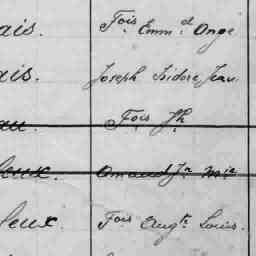 ais. Fois Emm.d Ange
ais. Joseph Isidore Jean
au. Fois Jh.
leux. Amand Jn Mie
leux. Fois Augte Louis.